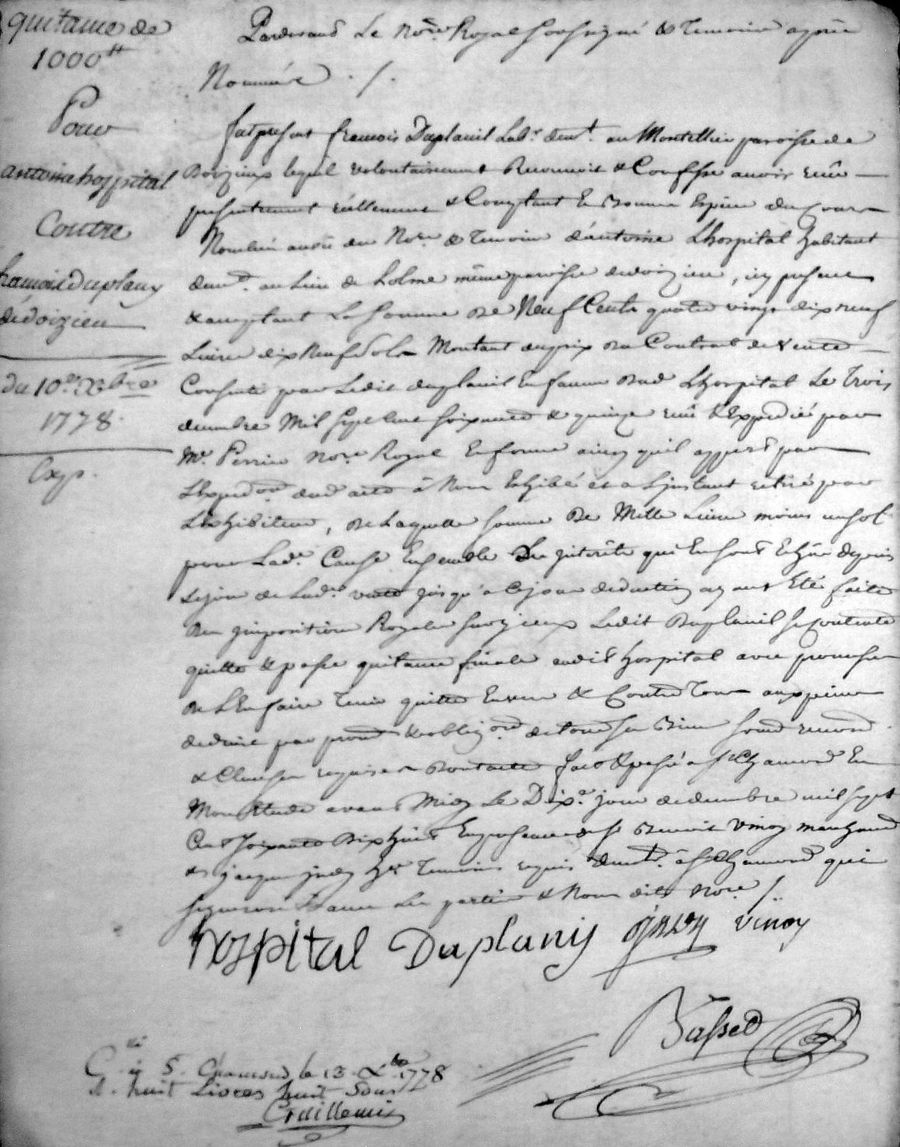 quitance de
1000ᵗᵗ
Pour
antoine hospital
Contre
francois Duplany
de doizieu
du 10ᵉ Xbre
1778.
Exp.
Pardevant Le Noʳᵉ Royal Soussigné & Temoins après
Nommés ./.
fut présent francois Duplanil Labʳ demᵗ au Montellier paroisse de
Doizieux lequel volontairement Reconnoit & Confesse avoir reçû
présentement réellement & Comptant En Bonne Espèce du Cours
Nombré au vû du Noʳᵉ & Temoins d'antoine Lhospital habitant
demᵗ au Lieu de Lolme même paroisse de doizieu, icy présent
& acceptant La Somme De Neuf Cents quatre vingt dix neuf
Livres dix Neuf Sols Montant du prix du Contrat de Vente
Consenti par Ledit duplanil En faveur dud. Lhospital Le Trois
decembre Mil Sept Cent Soixante & quinze reçû & Expedié par
Mᵉ Perrin Noʳᵉ Royal En forme ainsy qu'il appert par
L'expedᵒⁿ dud acte à Nous Exhibé et a L'instant retiré par
L'Exhibiteur, De Laquelle Somme De Mille Livres moins un sol
pour Ladᵉ Cause Ensemble Des interêts qui En sont Echus depuis
Le jour de Ladᵉ vente jusqu'à Ce jour deduction ayant Eté faite
Des impositions Royales Ledit Duplanil Se Contente
quitte & passe quitance finale audit hospital avec promesse
de L'En faire Tenir quitte Envers & Contre Tous aux peines
de droit par promᵉ & obligᵒⁿ de tous Ses Biens Soumᵒⁿ renonᵒⁿ
& Clauses requises Dont acte fait & passé à Sᵗ Chamond En
Mon Etude avant Midy Le Dixᵉ jour de decembre mil Sept
Cent Soixante Dix huit En présence de Sʳ Benoit Vinoy marchand
& jacque Temoins requis demᵗ à Sᵗ Chamond qui
Signeront Avec Les parties & Nous dit Noʳᵉ /.
hospital Duplanis Vinoy
Basset
Cˡᵉ à S. Chamond le 13 Xbre 1778
R. huit Livres huit Sous